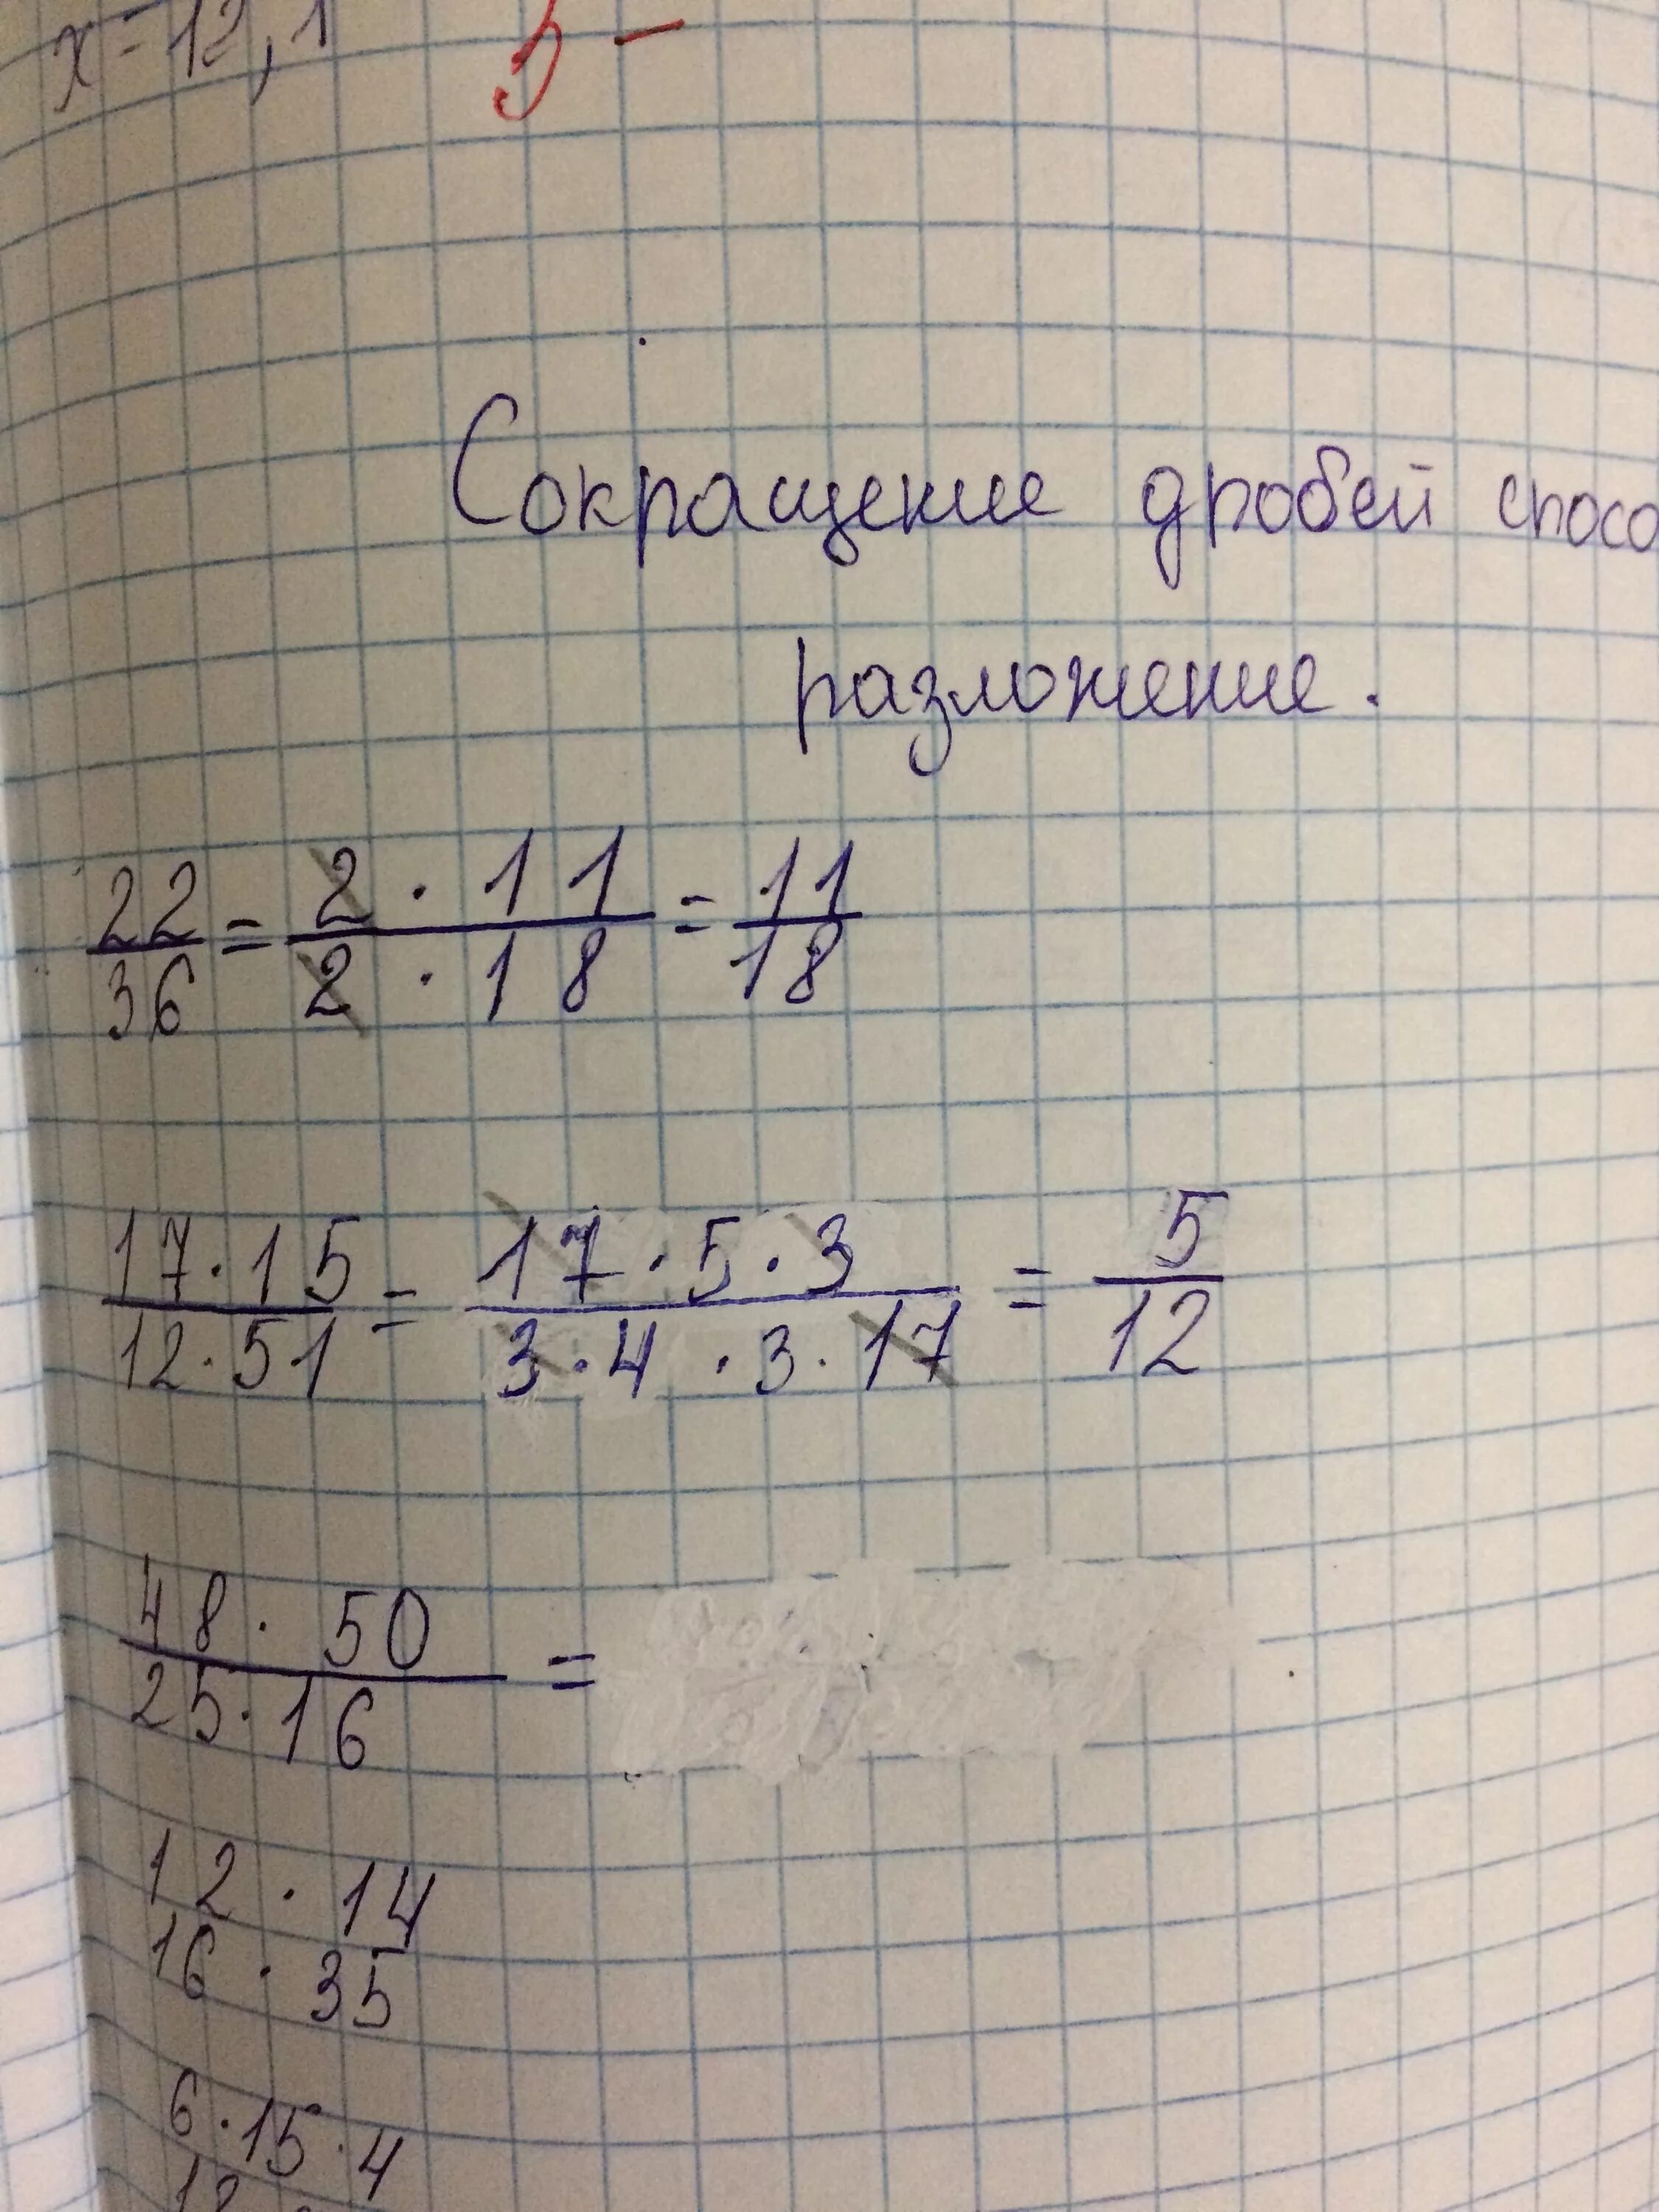 x=12,1 5-
Сокращение дробей спосо
разложение.
22/36 = 2 · 11 / 2 · 18 = 11/18
17·15 / 12·51 = 17 · 5 · 3 / 3 · 4 · 3 · 17 = 5/12
48 · 50 / 25 · 16 =
12 · 14
16 · 35
6 · 15 · 4